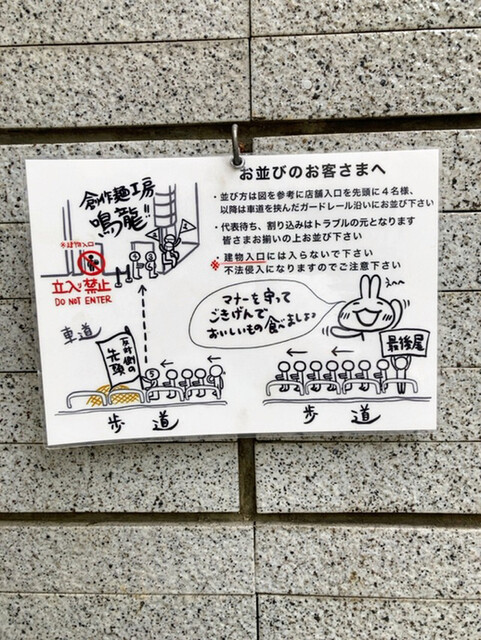 お並びのお客さまへ
・並び方は図を参考に店舗入口を先頭に４名様、
以降は車道を挟んだガードレール沿いにお並び下さい
・代表待ち、割り込みはトラブルの元となります
皆さまお揃いの上お並び下さい
・建物入口には入らないで下さい
※不法侵入になりますのでご注意下さい
創作麺工房
鳴龍!!
※建物入口
立入禁止
DO NOT ENTER
マナーを守って
ごきげんで
おいしいもの食べましょ♪
車道
反対側の
先頭
⑤
最後尾
歩道
歩道